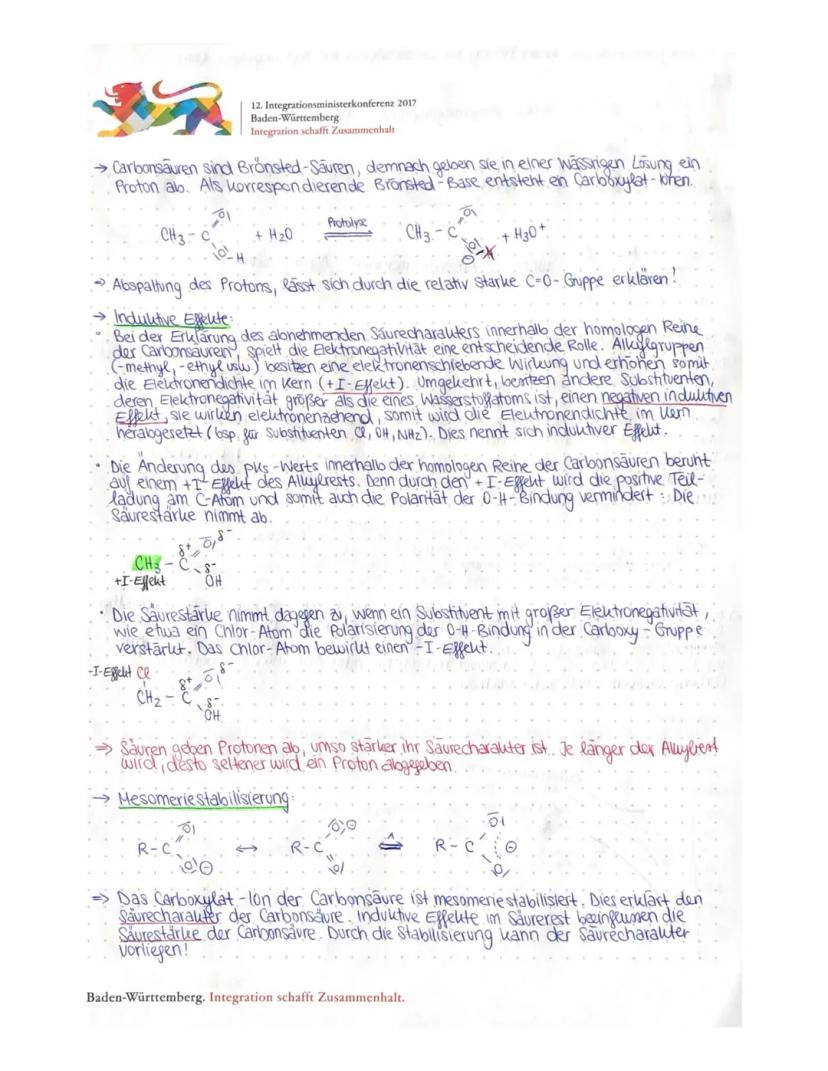 12. Integrationsministerkonferenz 2017
Baden-Württemberg
Integration schafft Zusammenhalt
→ Carbonsäuren sind Brönsted-Säuren, demnach geben sie in einer wässrigen Lösung ein
Proton ab. Als korrespondierende Brönsted-Base entsteht ein Carboxylat-Ionen.
CH3 - C O O-H + H2O Protolyse CH3 - C O O ⊖ + H3O+
→ Abspaltung des Protons, lässt sich durch die relativ starke C=O-Gruppe erklären!
→ Induktive Effekte:
• Bei der Erklärung des abnehmenden Säurecharakters innerhalb der homologen Reihe
der Carbonsäuren, spielt die Elektronegativität eine entscheidende Rolle. Alkylgruppen
(-methyl, -ethyl usw.) besitzen eine elektronenschiebende Wirkung und erhöhen somit
die Elektronendichte im Kern (+I-Effekt). Umgekehrt, besitzen andere Substituenten,
deren Elektronegativität größer als die eines Wasserstoffatoms ist, einen negativen induktiven
Effekt, sie wirken elektronenziehend, somit wird die Elektronendichte im Kern
herabgesetzt (bsp. für Substituenten Cl, OH, NH2). Dies nennt sich induktiver Effekt.
• Die Änderung des pks-Werts innerhalb der homologen Reihe der Carbonsäuren beruht
auf einem +I-Effekt des Alkylrests. Denn durch den +I-Effekt wird die positive Teil-
ladung am C-Atom und somit auch die Polarität der O-H-Bindung vermindert: Die
Säurestärke nimmt ab.
δ+ O δ-
CH3 - C δ-
+I-Effekt OH
• Die Säurestärke nimmt dagegen zu, wenn ein Substituent mit großer Elektronegativität,
wie etwa ein Chlor-Atom die Polarisierung der O-H-Bindung in der Carboxy-Gruppe
verstärkt. Das Chlor-Atom bewirkt einen -I-Effekt.
-I-Effekt Cl δ+ O δ-
CH2 - C δ-
OH
⇒ Säuren geben Protonen ab, umso stärker ihr Säurecharakter ist. Je länger der Alkylrest
wird, desto seltener wird ein Proton abgegeben.
→ Mesomeriestabilisierung:
R-C O O ⊖ ↔ R-C O ⊖ O ≙ R-C O ⊖ O
⇒ Das Carboxylat-Ion der Carbonsäure ist mesomeriestabilisiert. Dies erklärt den
Säurecharakter der Carbonsäure. Induktive Effekte im Säurerest beeinflussen die
Säurestärke der Carbonsäure. Durch die Stabilisierung kann der Säurecharakter
vorliegen!
Baden-Württemberg. Integration schafft Zusammenhalt.